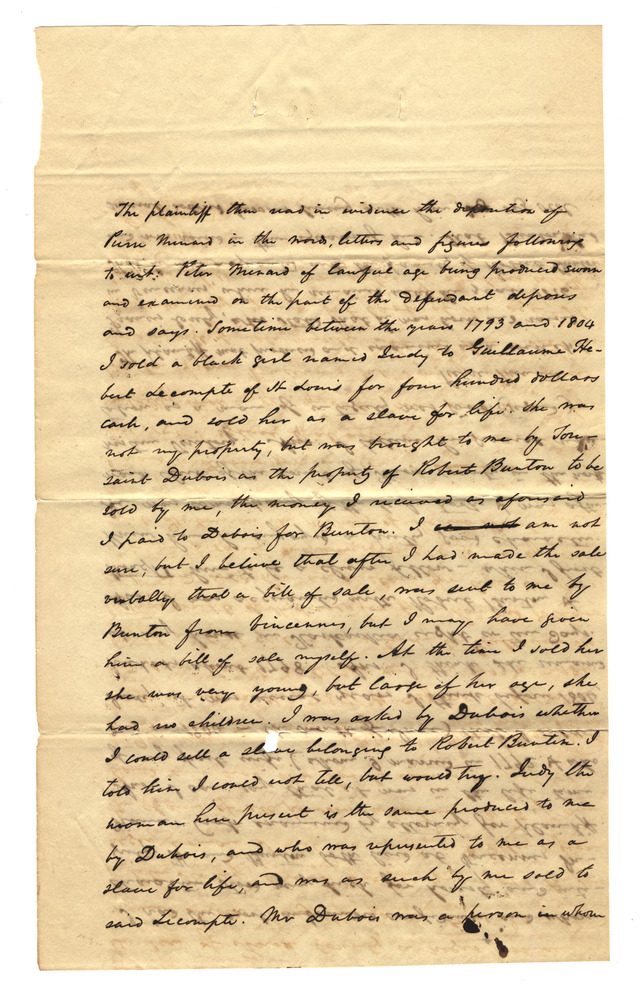 The plaintiff then read in evidence the deposition of
Pierre Menard in the words, letters and figures following
to wit: Peter Menard of lawful age being produced sworn
and examined on the part of the defendant deposes
and says. Sometime between the years 1793 and 1804
I sold a black girl named Judy to Guillaume He-
bert Lecompte of St Louis for four hundred dollars
cash, and sold her as a slave for life. She was
not my property, but was brought to me by Tou-
saint Dubois as the property of Robert Bunton to be
sold by me, the money I received as aforesaid
I paid to Dubois for Bunton. I am not
sure, but I believe that after I had made the sale
verbally that a bill of sale, was sent to me by
Bunton from Vincennes, but I may have given
him a bill of sale myself. At the time I sold her
she was very young, but large of her age, she
had no children. I was asked by Dubois whether
I could sell a slave belonging to Robert Buntin. I
told him I could not tell, but would try. Judy the
woman here present is the same produced to me
by Dubois, and who was represented to me as a
slave for life, and was as such by me sold to
said Lecompte. Mr Dubois was a person in whom